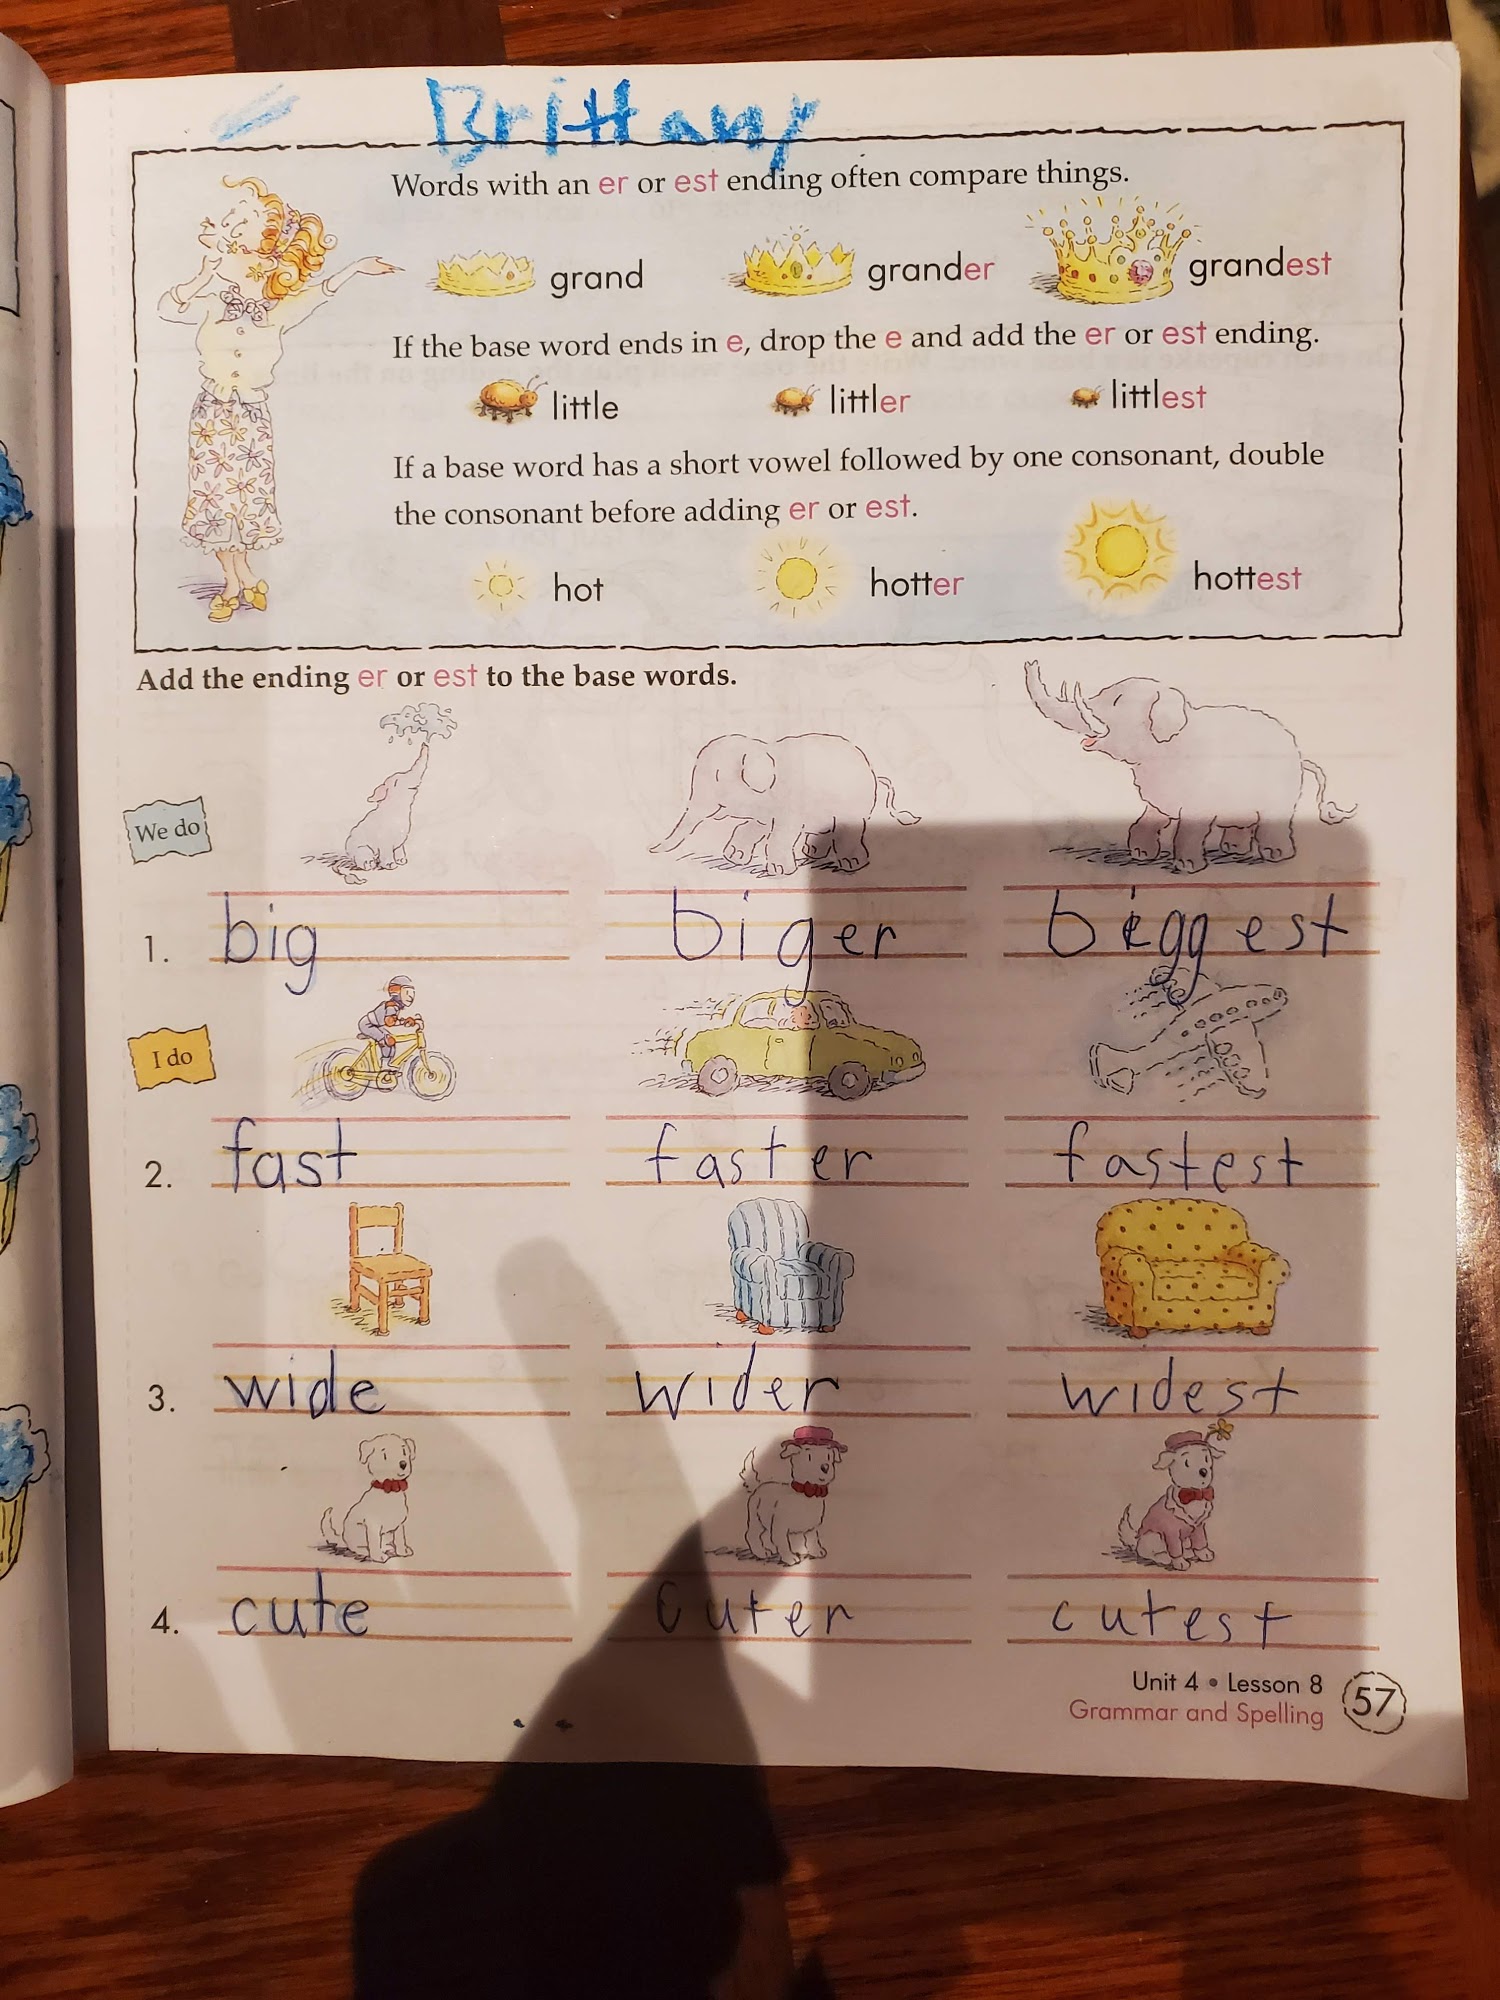 Brittany
Words with an er or est ending often compare things.
grand grander grandest
If the base word ends in e, drop the e and add the er or est ending.
little littler littlest
If a base word has a short vowel followed by one consonant, double
the consonant before adding er or est.
hot hotter hottest
Add the ending er or est to the base words.
We do
1. big biger biggest
I do
2. fast faster fastest
3. wide wider widest
4. cute cuter cutest
Unit 4 • Lesson 8
Grammar and Spelling 57